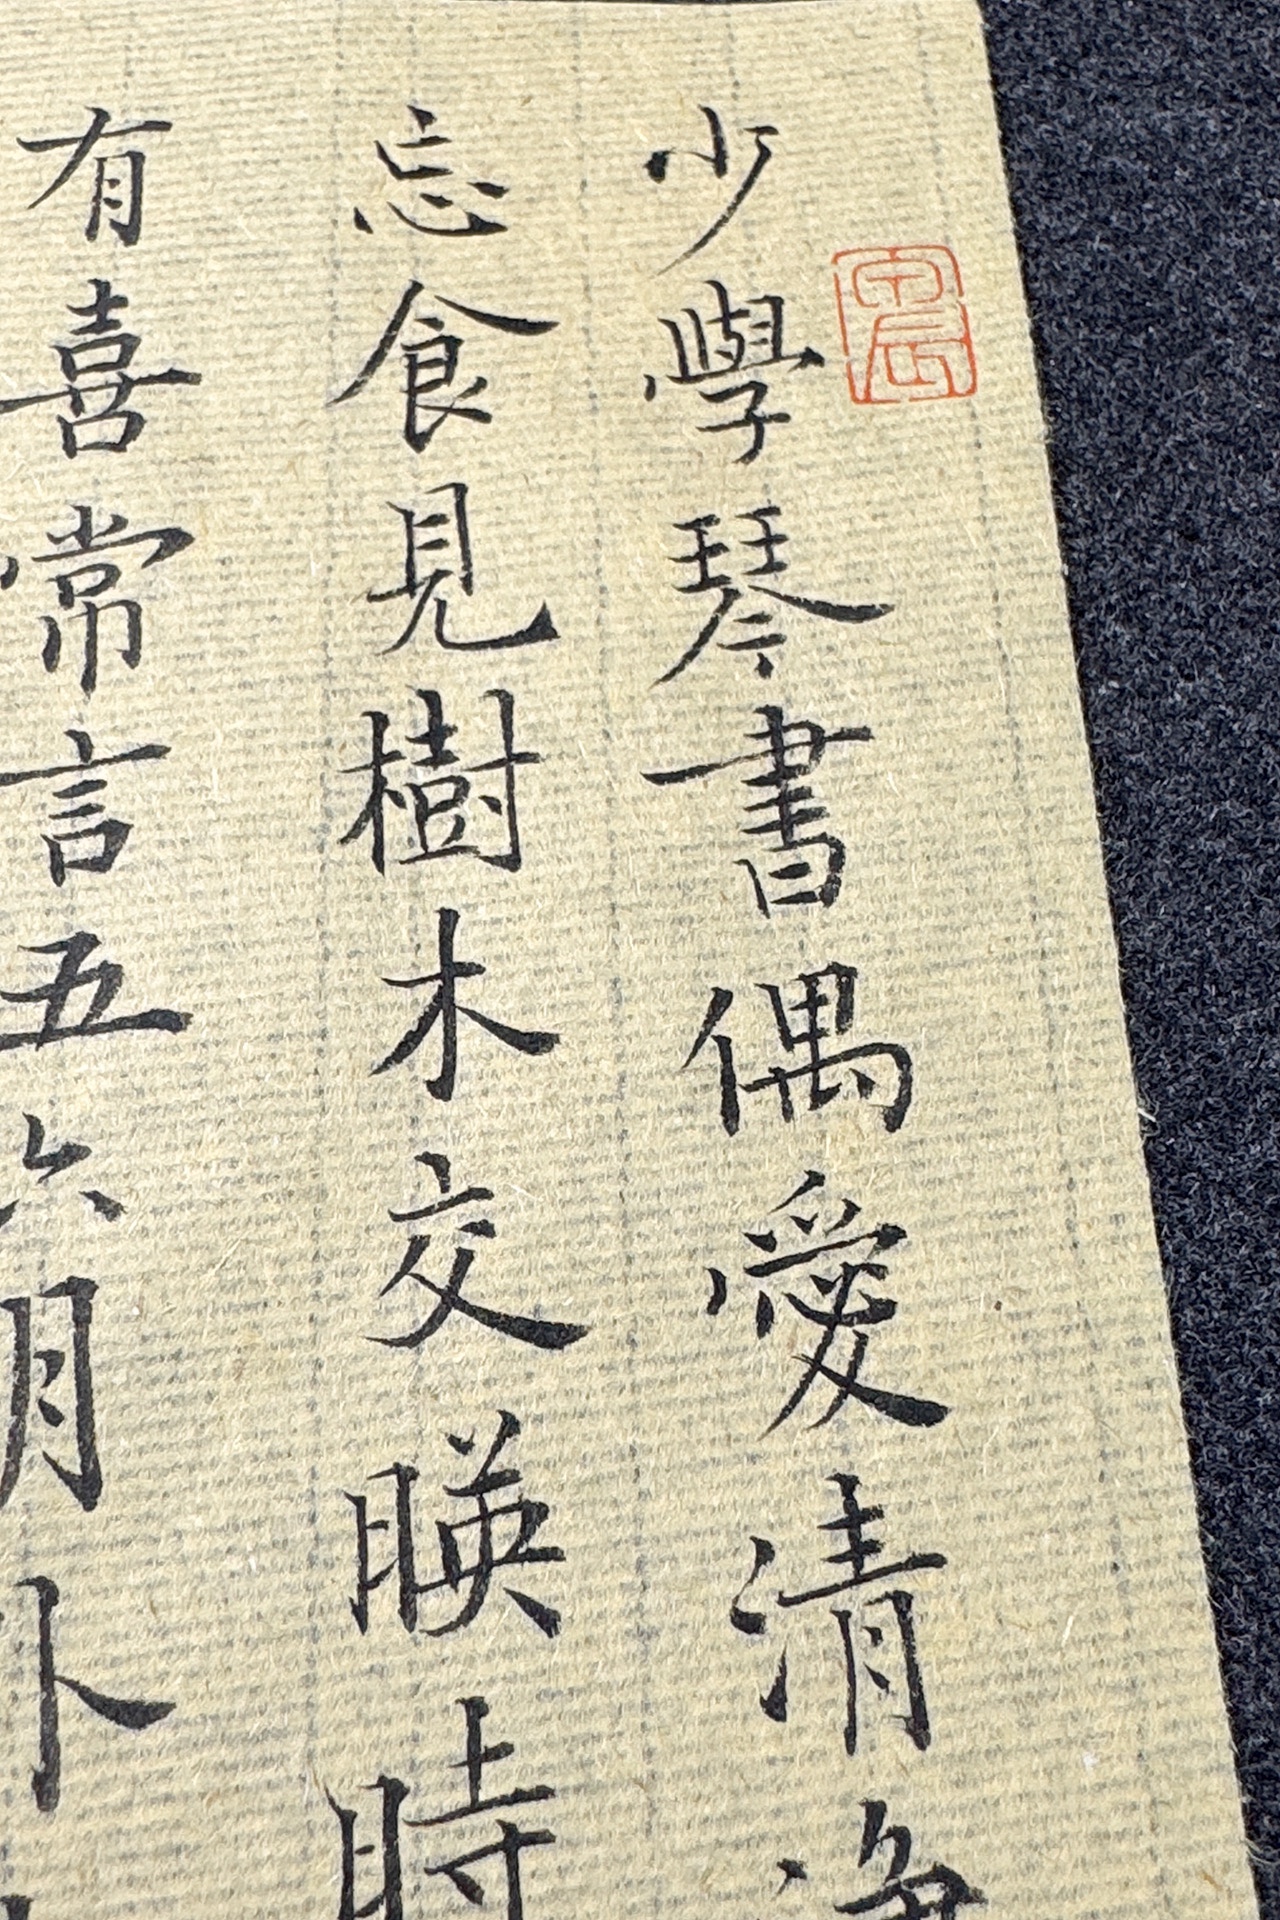 少學琴書偶愛清
忘食見樹木交暎時
有喜常言五六月